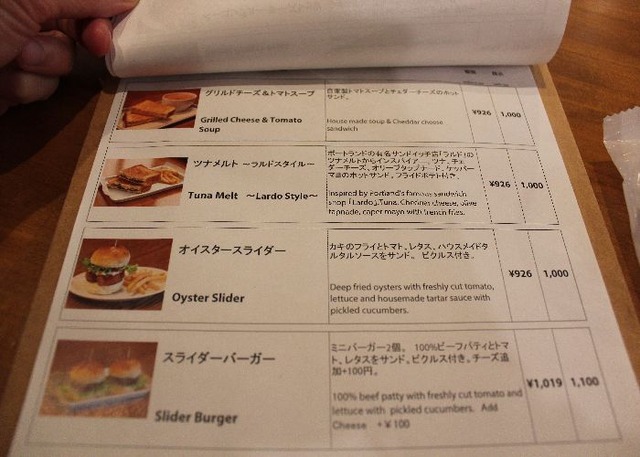 グリルドチーズ＆トマトスープ
Grilled Cheese & Tomato
Soup
自家製トマトスープとチェダーチーズのホット
サンド。
House made soup & Cheddar cheese
sandwich
¥926
1,000
ツナメルト ～ラルドスタイル～
Tuna Melt ～Lardo Style～
ポートランドの有名サンドイッチ店「ラルド」の
ツナメルトからインスパイアー。ツナ、チェ
ダーチーズ、オリーブタップナード、ケッパー
マヨのホットサンド。フライドポテト付き。
Inspired by Portland's famous sandwich
shop「Lardo」,Tuna, Cheddar cheese, olive
tapnade, caper mayo with french fries.
¥926
1,000
オイスタースライダー
Oyster Slider
カキのフライとトマト、レタス、ハウスメイドタ
ルタルソースをサンド。 ピクルス付き。
Deep fried oysters with freshly cut tomato,
lettuce and housemade tartar sauce with
pickled cucumbers.
¥926
1,000
スライダーバーガー
Slider Burger
ミニバーガー2個。 100%ビーフパティとトマ
ト、レタスをサンド。ピクルス付き。チーズ追
加+100円。
100% beef patty with freshly cut tomato and
lettuce with pickled cucumbers. Add
Cheese +￥100
¥1,019
1,100